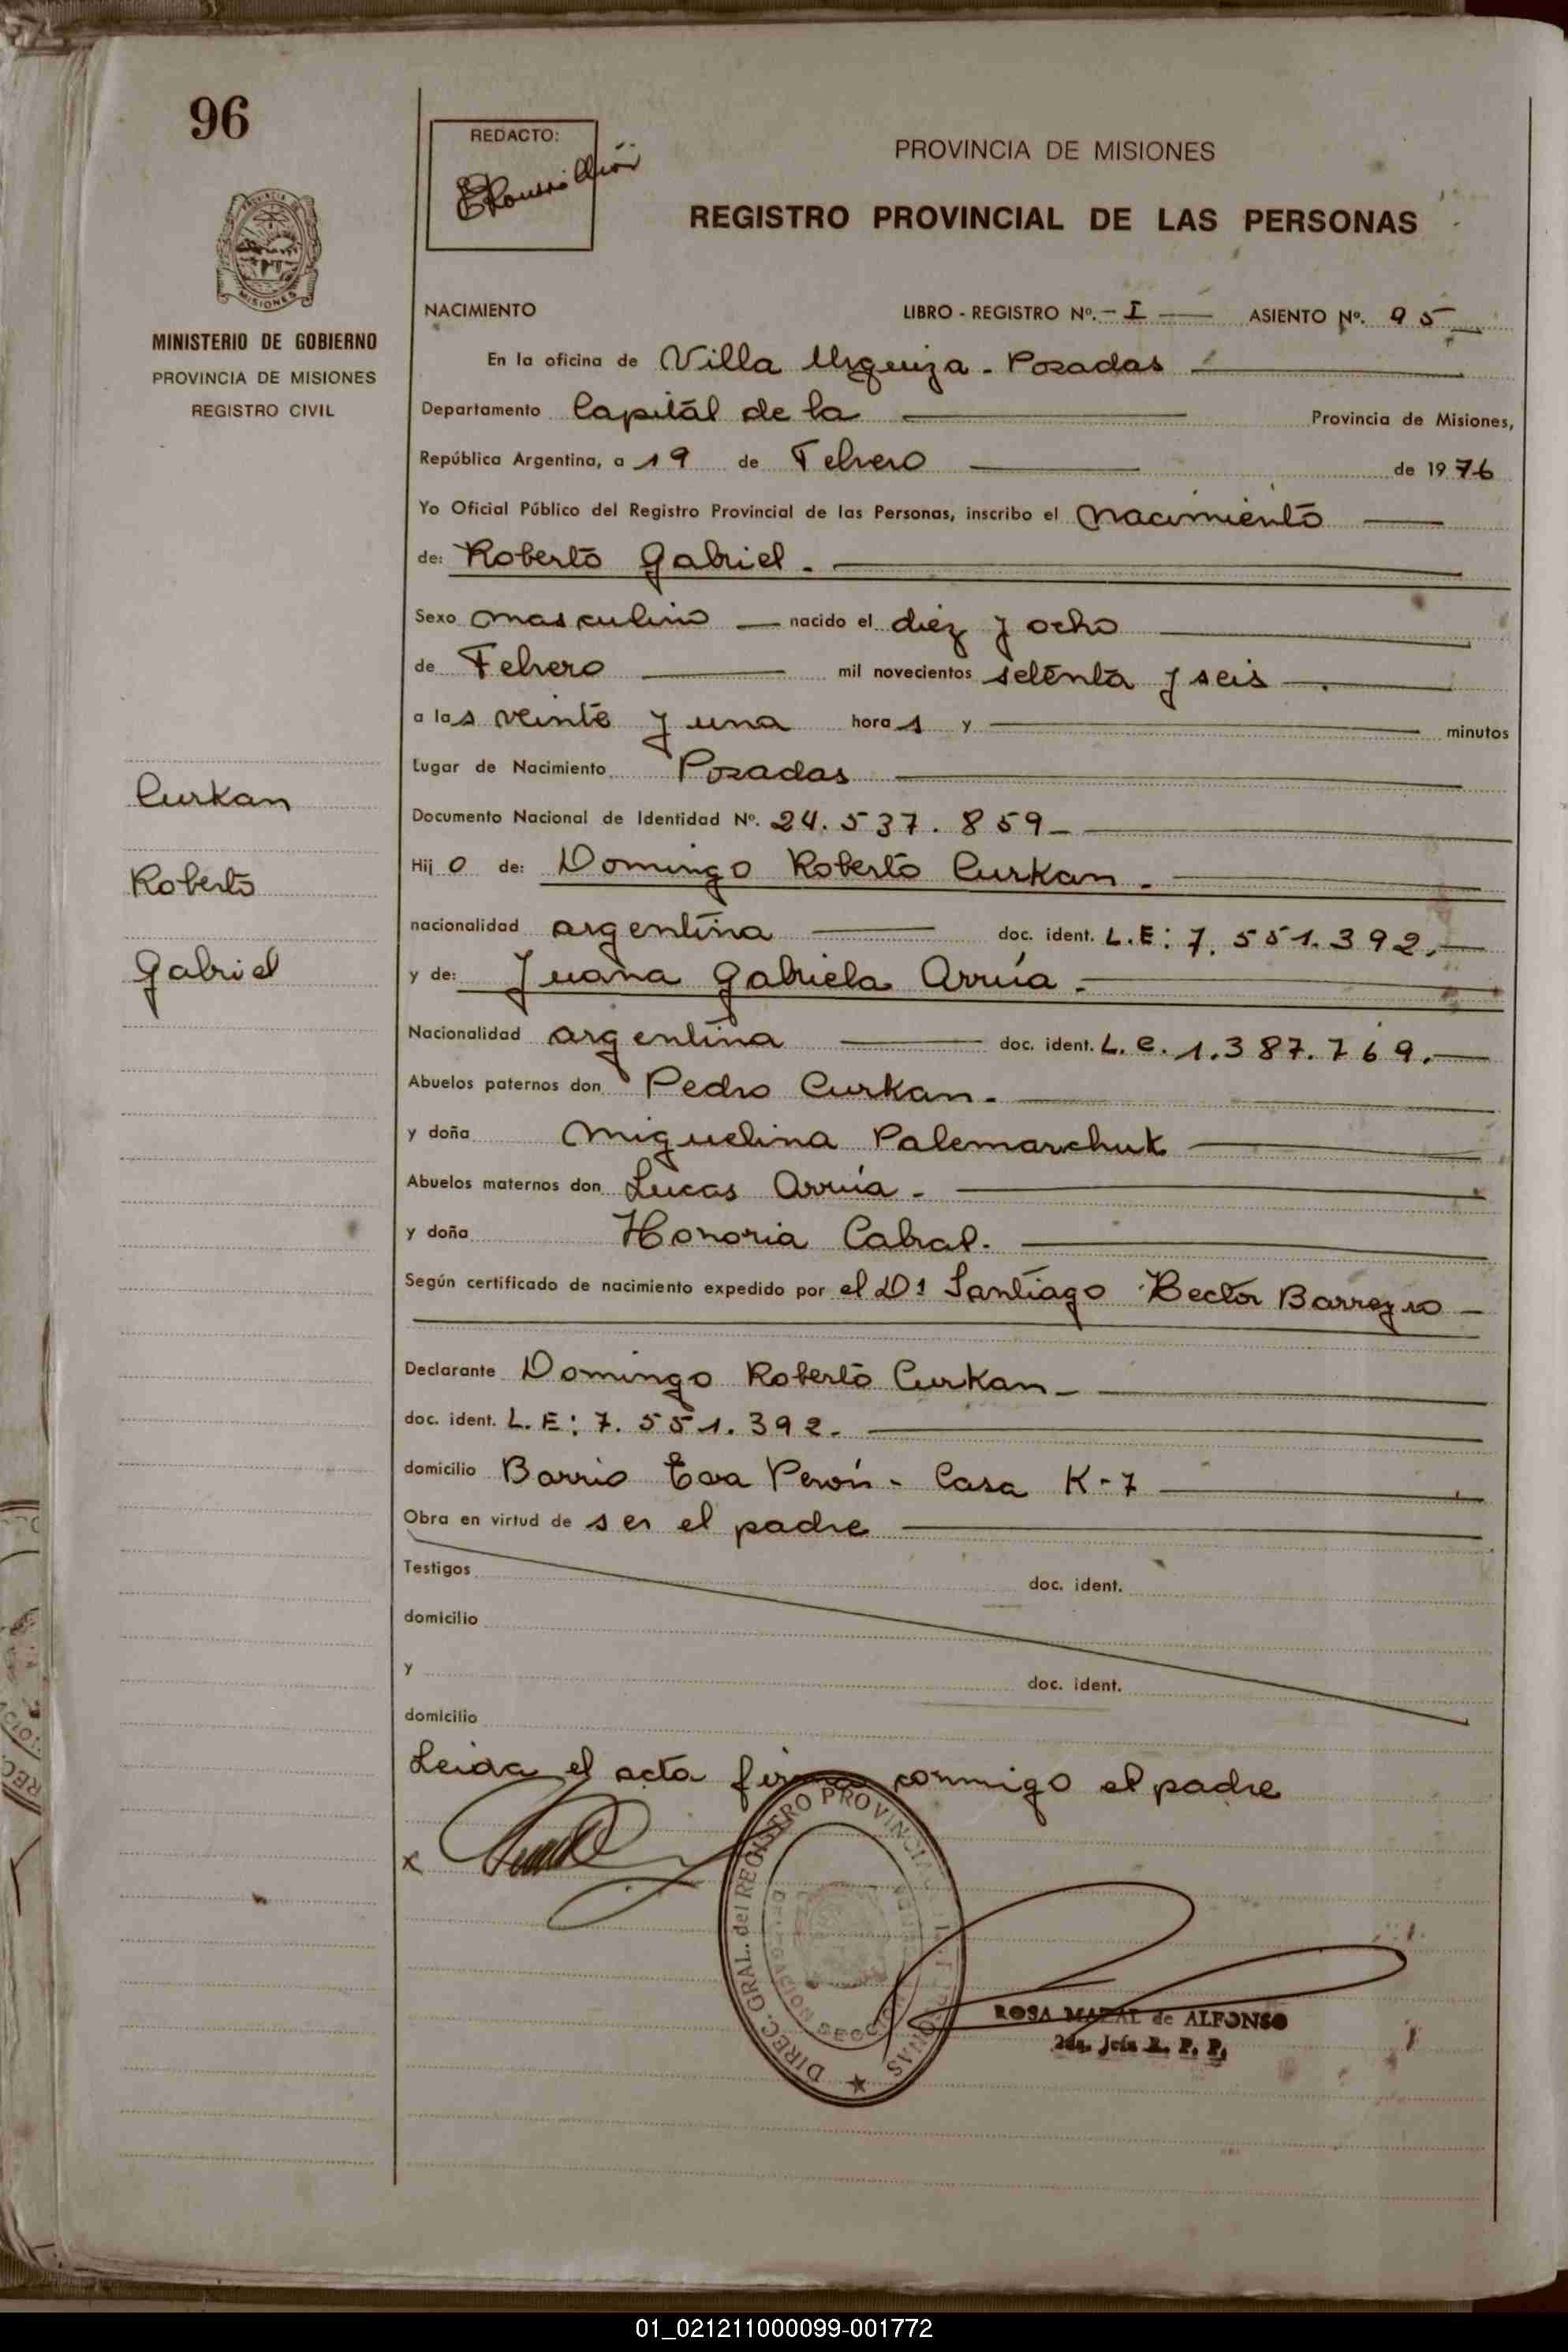 96
MINISTERIO DE GOBIERNO
PROVINCIA DE MISIONES
REGISTRO CIVIL
Curkan
Roberto
Gabriel
REDACTO:
PROVINCIA DE MISIONES
REGISTRO PROVINCIAL DE LAS PERSONAS
NACIMIENTO LIBRO - REGISTRO Nº. - I — ASIENTO Nº. 95
En la oficina de Villa Urquiza - Posadas
Departamento Capital de la Provincia de Misiones,
República Argentina, a 19 de Febrero de 1976
Yo Oficial Público del Registro Provincial de las Personas, inscribo el nacimiento
de: Roberto Gabriel.
Sexo masculino nacido el diez y ocho
de Febrero mil novecientos setenta y seis
a las veinte y una horas y minutos
Lugar de Nacimiento Posadas
Documento Nacional de Identidad Nº. 24.537.859
Hijo de: Domingo Roberto Curkan.
nacionalidad argentina doc. ident. L.E: 7.551.392.
y de: Juana Gabriela Arrúa.
Nacionalidad argentina doc. ident. L.C. 1.387.769.
Abuelos paternos don Pedro Curkan.
y doña Miguelina Palemarchuk
Abuelos maternos don Lucas Arrúa.
y doña Honoria Cabral.
Según certificado de nacimiento expedido por el Dr Santiago Hector Barreyro
Declarante Domingo Roberto Curkan
doc. ident. L.E: 7.551.392.
domicilio Barrio Eva Perón - Casa K-7
Obra en virtud de ser el padre
Testigos doc. ident.
domicilio
y doc. ident.
domicilio
Leida el acta firma conmigo el padre
x
DIREC. GRAL. del REGISTRO PROVINCIAL
ROSA MAZAL de ALFONSO
2da. Jefa R. P. P.
01_021211000099-001772